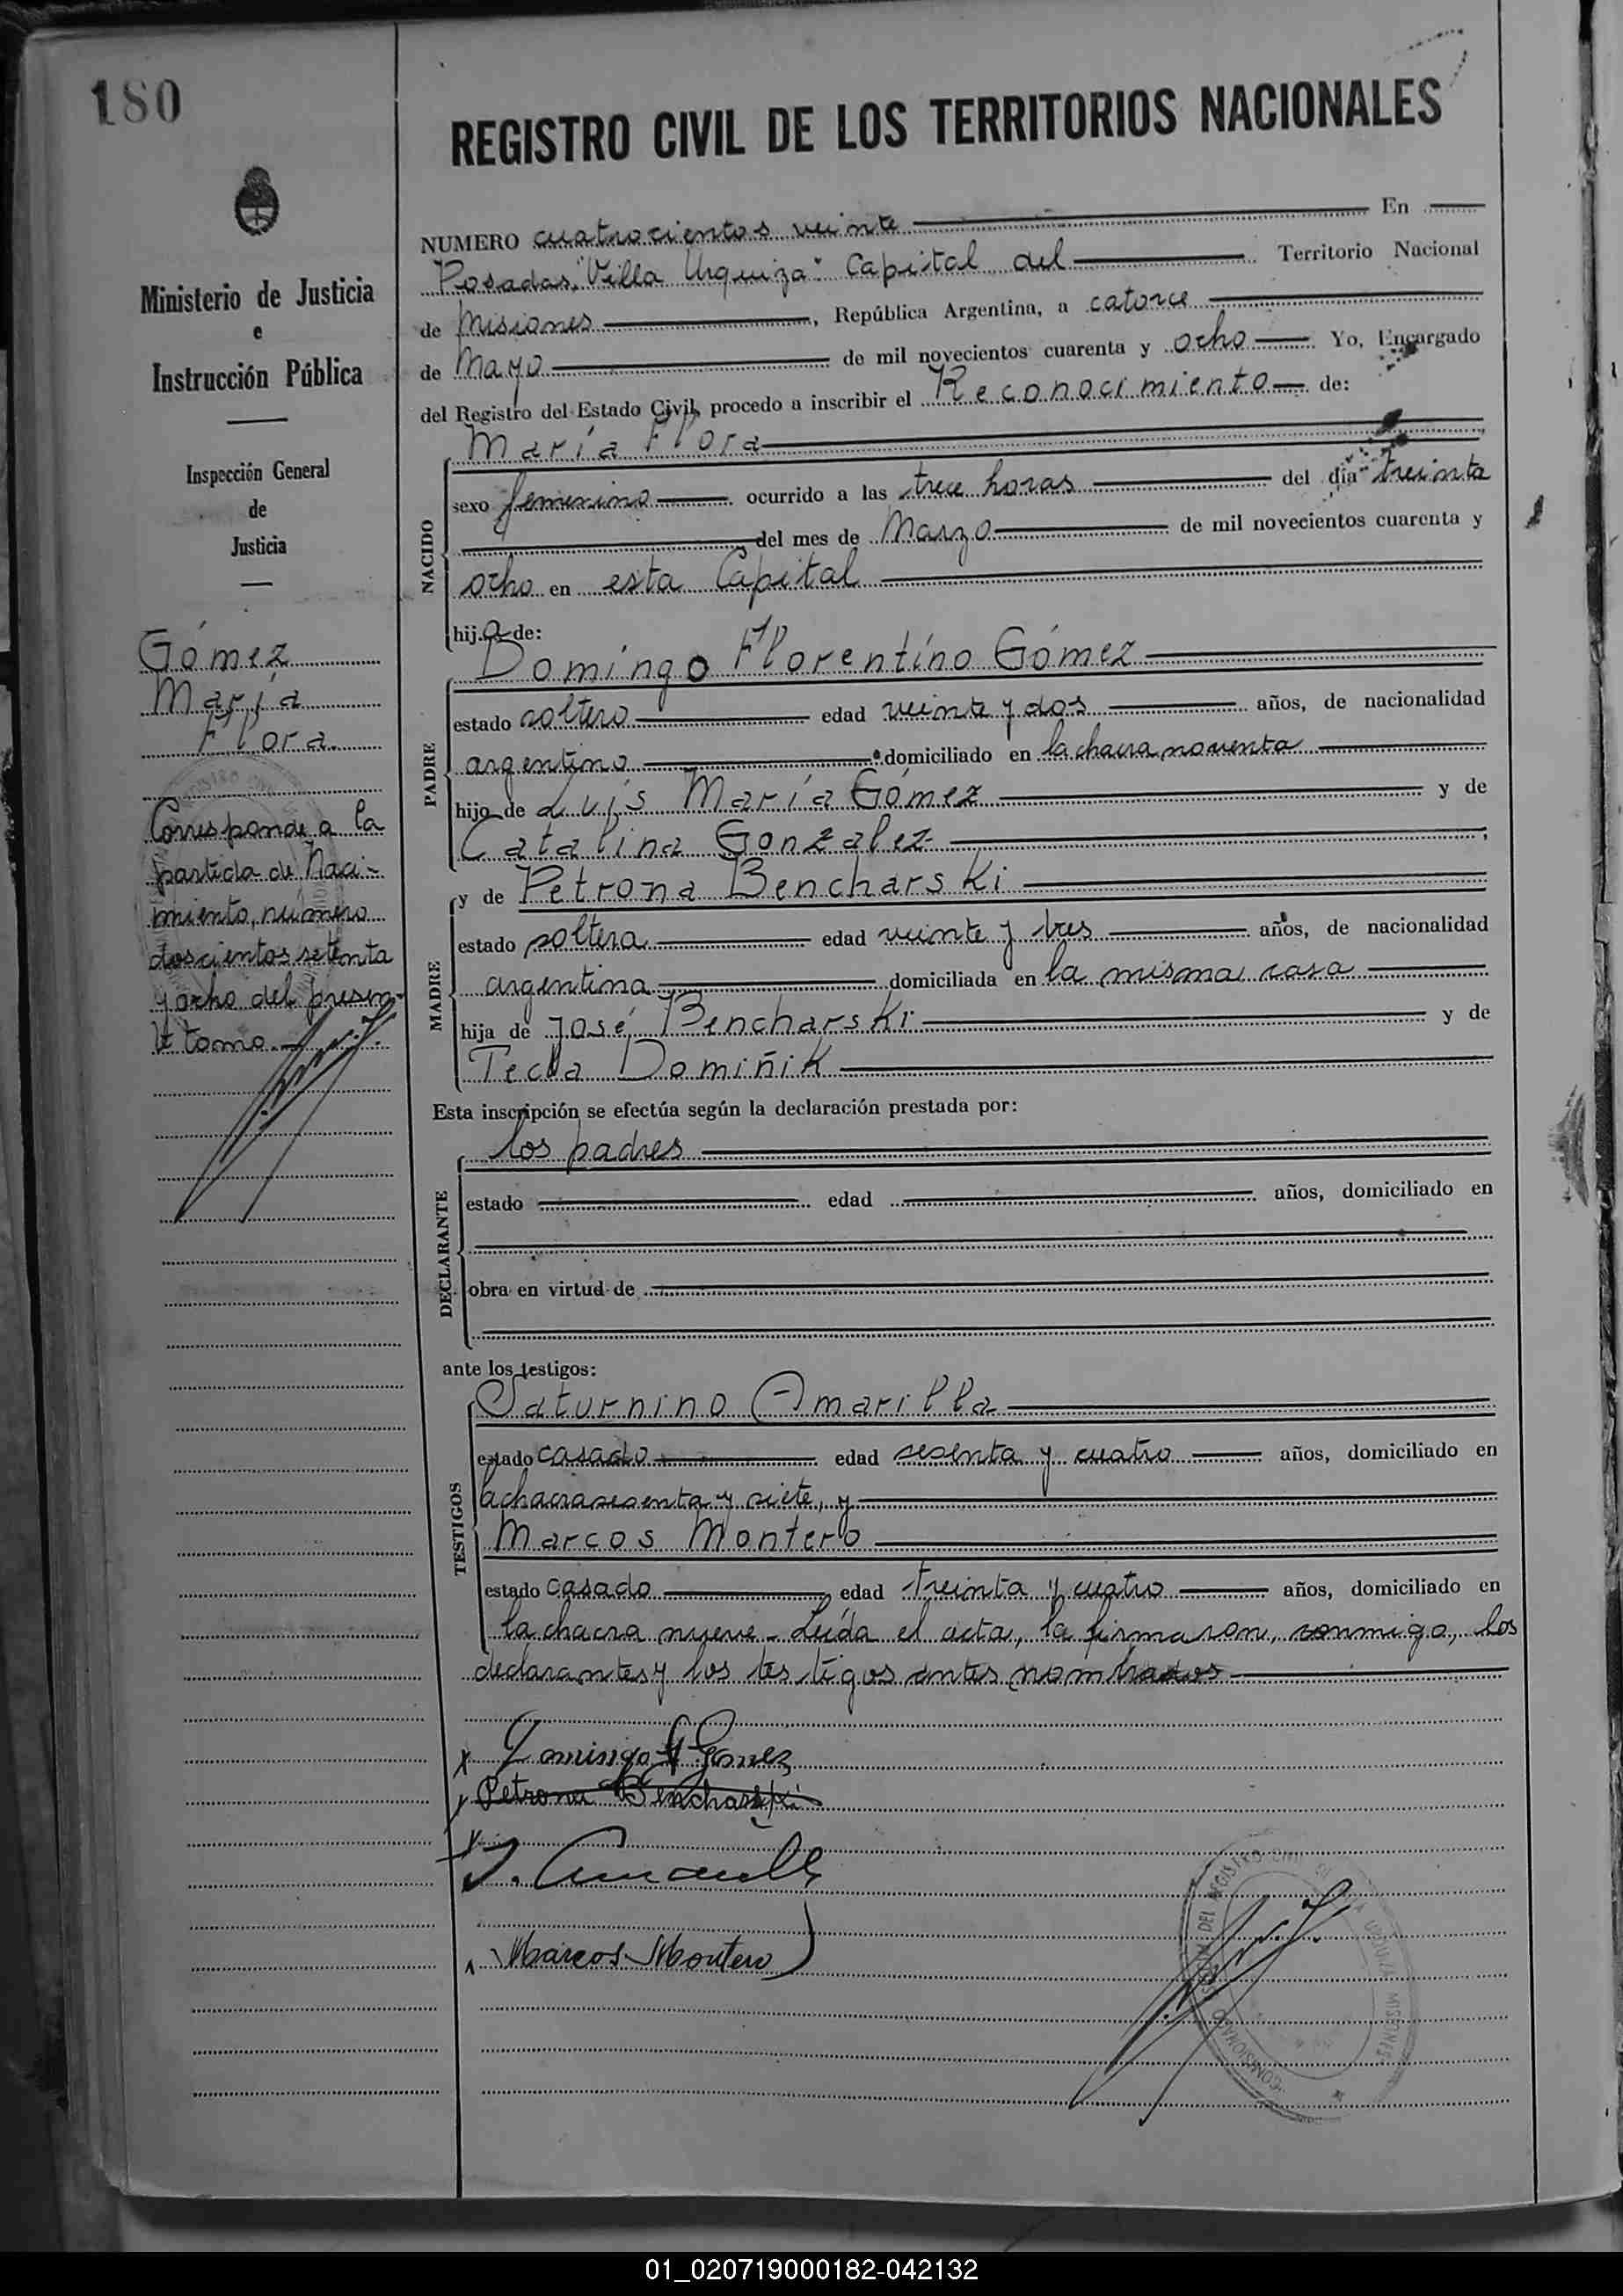 180
REGISTRO CIVIL DE LOS TERRITORIOS NACIONALES
Ministerio de Justicia
e
Instrucción Pública
Inspección General
de
Justicia
Gómez
María
Flora.
Corresponde a la
partida de Naci-
miento, número
doscientos setenta
y ocho del presen-
te tomo.
NUMERO cuatrocientos veinte En
Posadas, "Villa Urquiza" Capital del Territorio Nacional
de Misiones, República Argentina, a catorce
de Mayo de mil novecientos cuarenta y ocho Yo, Encargado
del Registro del Estado Civil, procedo a inscribir el Reconocimiento de:
NACIDO
María Flora
sexo femenino ocurrido a las trece horas del día treinta
del mes de Marzo de mil novecientos cuarenta y
ocho en esta Capital
hija de:
PADRE
Domingo Florentino Gómez
estado soltero edad veinte y dos años, de nacionalidad
argentino domiciliado en la chacra noventa
hijo de Luís María Gómez y de
Catalina Gonzalez
MADRE
y de Petrona Bencharski
estado soltera edad veinte y tres años, de nacionalidad
argentina domiciliada en la misma casa
hija de José Bencharski y de
Tecla Domiñik
Esta inscripción se efectúa según la declaración prestada por:
DECLARANTE
los padres
estado edad años, domiciliado en
obra en virtud de
ante los testigos:
TESTIGOS
Saturnino Amarilla
estado casado edad sesenta y cuatro años, domiciliado en
la chacra sesenta y siete, y
Marcos Montero
estado casado edad treinta y cuatro años, domiciliado en
la chacra nueve - Leída el acta, la firmaron, conmigo, los
declarantes y los testigos antes nombrados
Domingo F Gomez
Petrona Bencharski
Marcos Montero
01_020719000182-042132